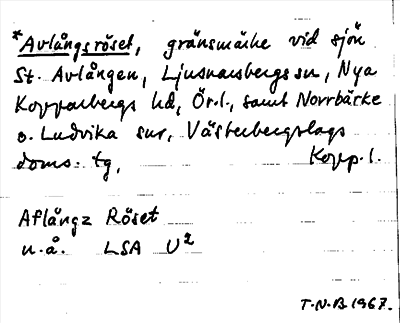 *Avlångsröset, gränsmärke vid sjön
St. Avlången, Ljusnarsbergs sn, Nya
Kopparbergs hd, Ör.l., samt Norrbärke
o. Ludvika snr, Västerbergslags
doms. tg, Kopp.l.
Aflångz Röset
u.å. LSA U²
T.N.B 1967.